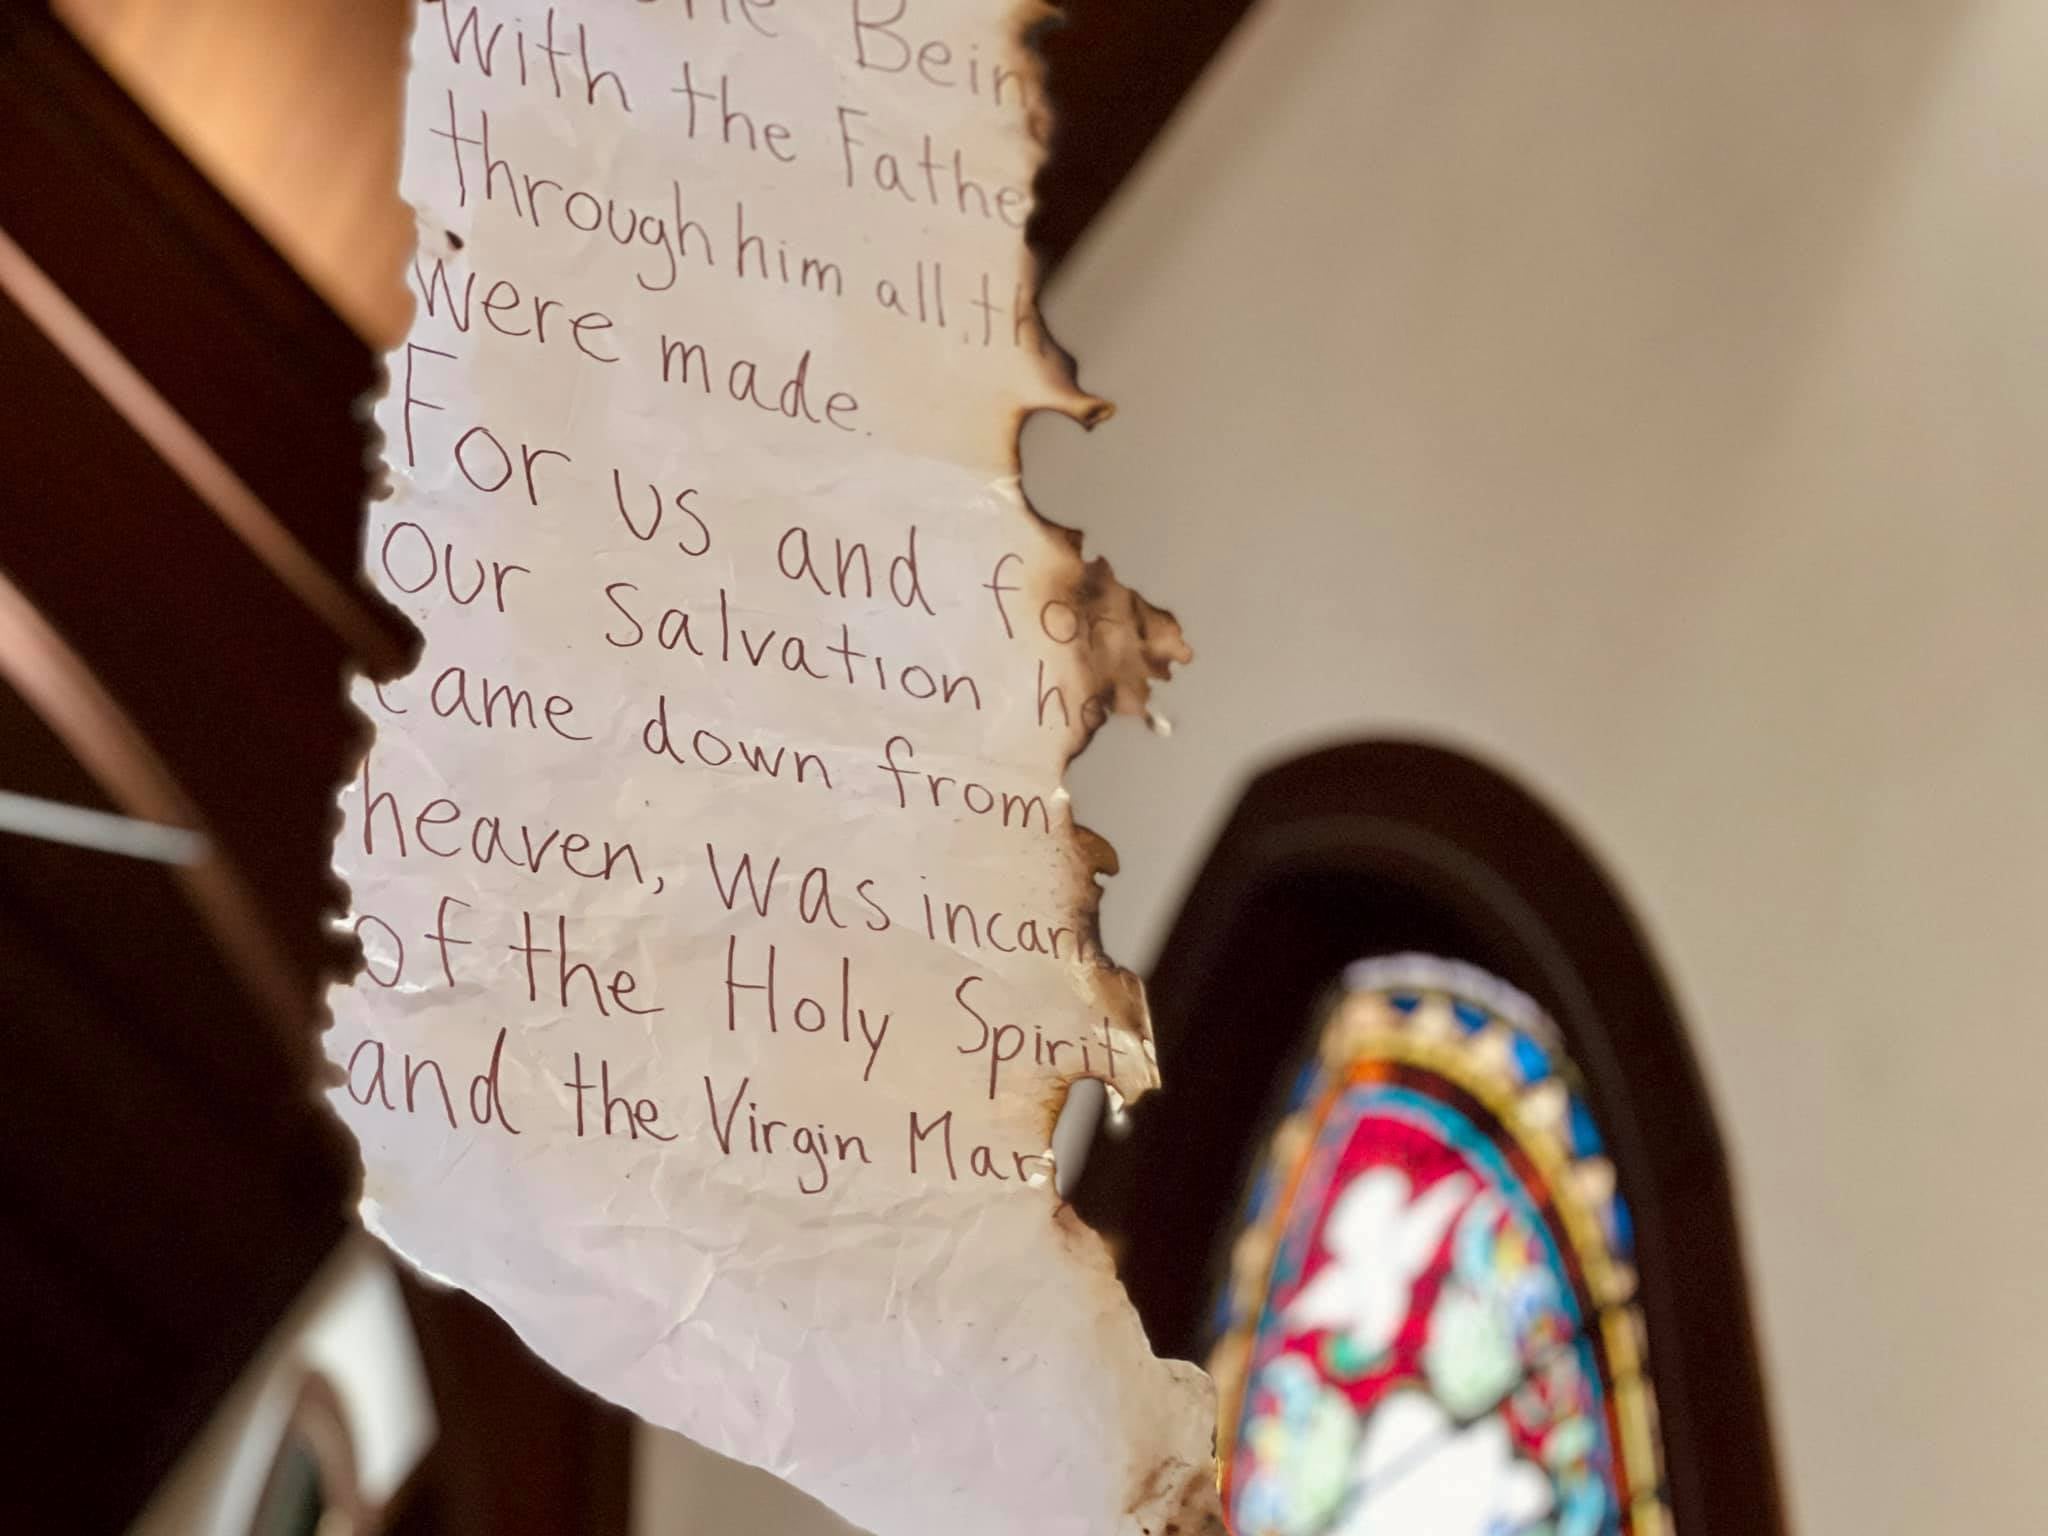 Bein
with the Fathe
through him all th
were made.
For us and for
Our salvation he
came down from
heaven, was incarn
of the Holy Spirit
and the Virgin Mar